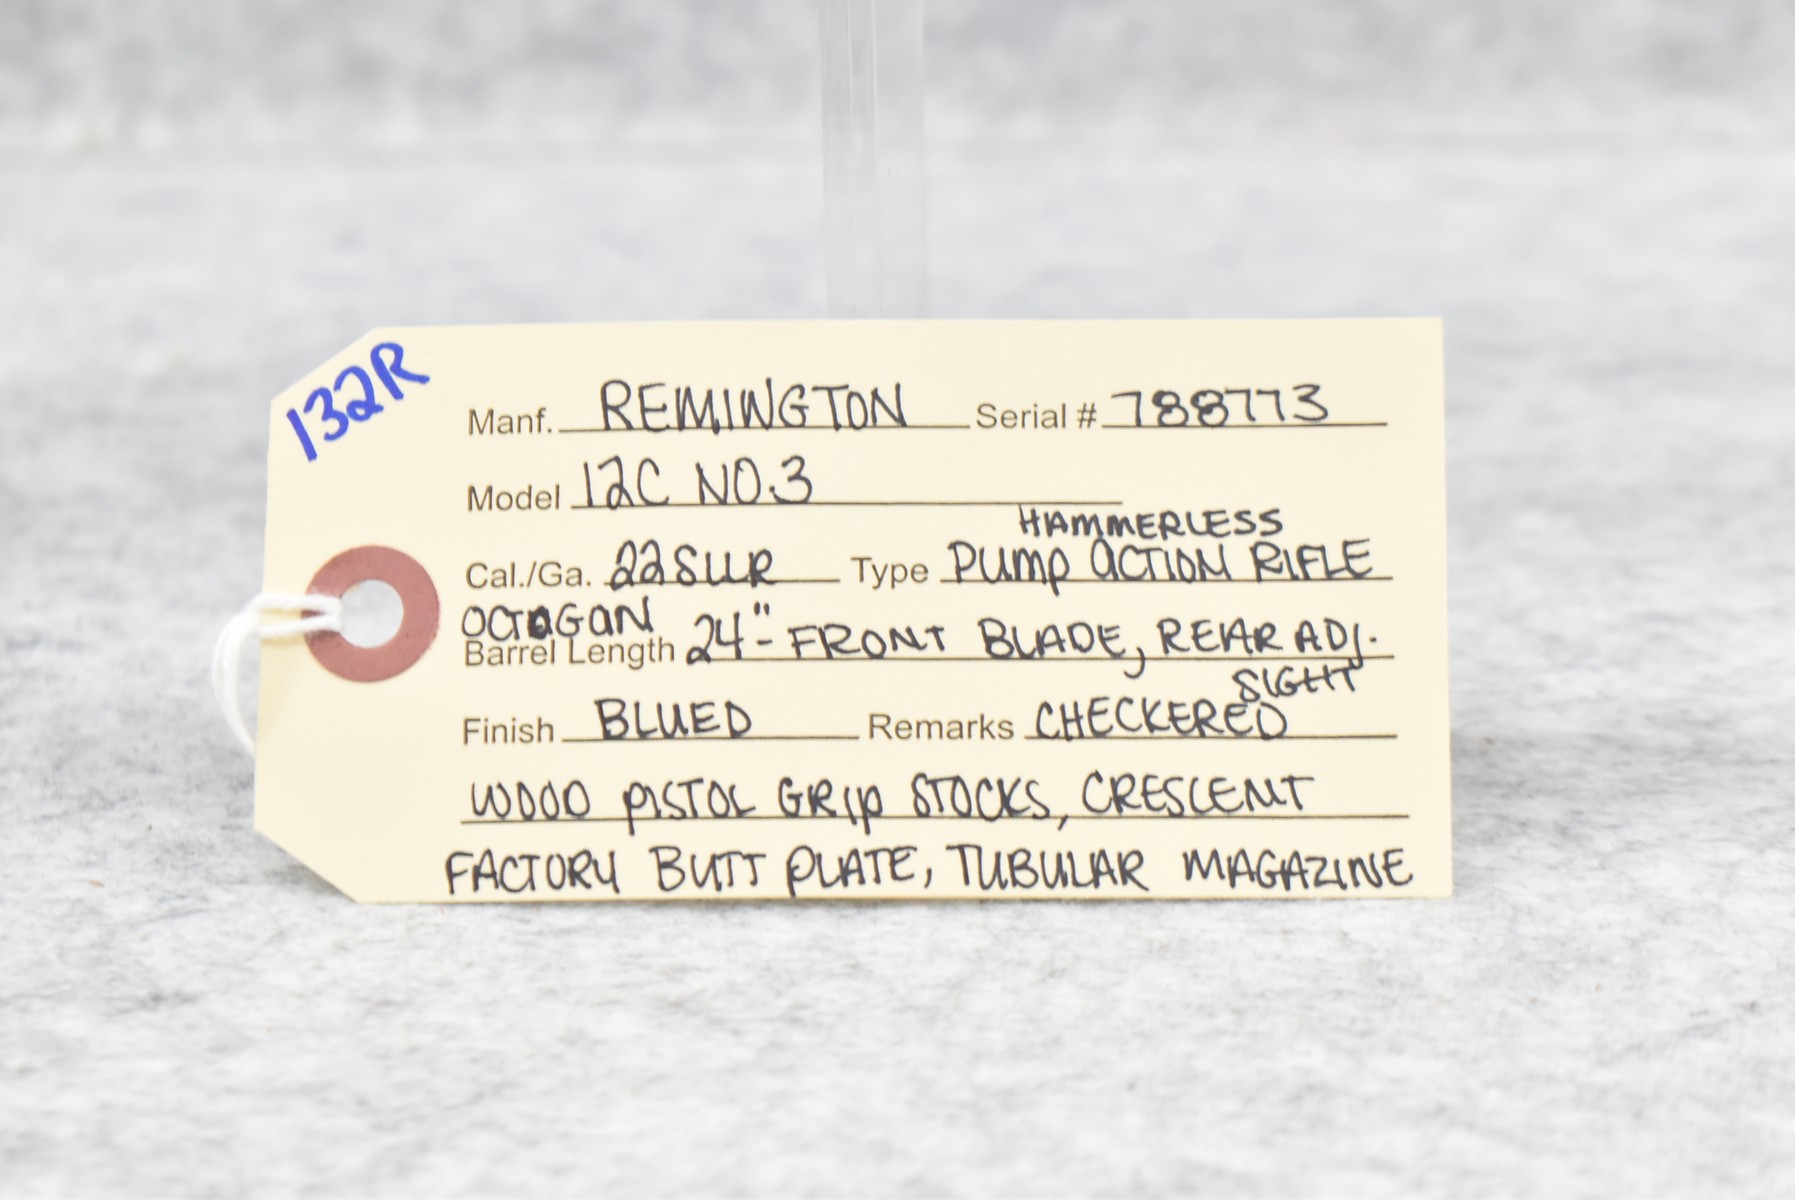 132R
Manf. REMINGTON Serial # 788773
Model 12C NO.3
HAMMERLESS
Cal./Ga. 22SLLR Type PUMP ACTION RIFLE
OCTOGAN
Barrel Length 24"- FRONT BLADE, REAR ADJ.
SIGHT
Finish BLUED Remarks CHECKERED
WOOD PISTOL GRIP STOCKS, CRESCENT
FACTORY BUTT PLATE, TUBULAR MAGAZINE